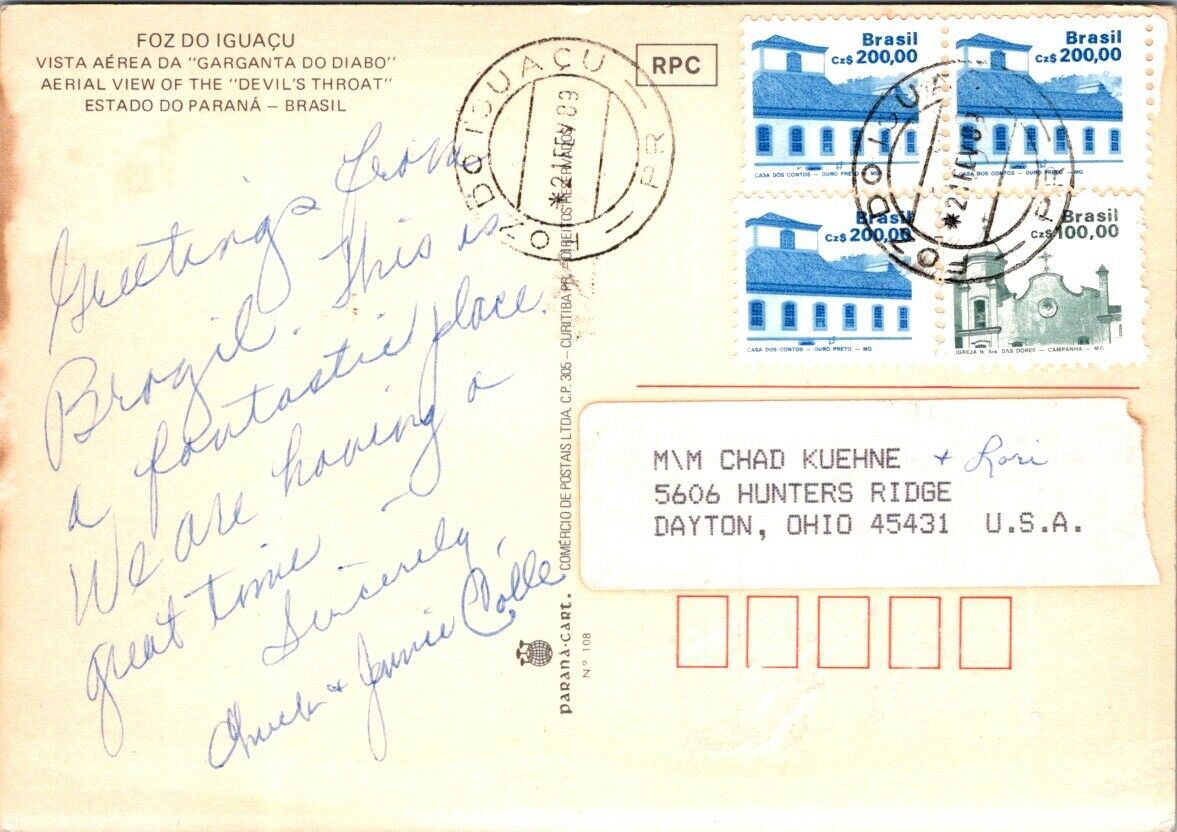 FOZ DO IGUAÇU
VISTA AÉREA DA "GARGANTA DO DIABO"
AERIAL VIEW OF THE "DEVIL'S THROAT"
ESTADO DO PARANÁ – BRASIL
Greetings from
Brazil. This is
a fantastic place.
We are having a
great time –
Sincerely,
Chuck + Janie
COMÉRCIO DE POSTAIS LTDA. C.P. 305 – CURITIBA PR. DIREITOS RESERVADOS
paraná-cart.
Nº 108
FOZ DO IGUAÇU
PR
*21 FEV 89
RPC
Brasil
Cz$ 200,00
CASA DOS CONTOS – OURO PRETO – MG
Brasil
Cz$ 200,00
CASA DOS CONTOS – OURO PRETO – MG
Brasil
Cz$ 200,00
CASA DOS CONTOS – OURO PRETO – MG
Brasil
Cz$ 100,00
IGREJA N. Sra. DAS DORES – CAMPANHA – MG
FOZ DO IGUA
*21 FEV 89
M\M CHAD KUEHNE + Lori
5606 HUNTERS RIDGE
DAYTON, OHIO 45431 U.S.A.